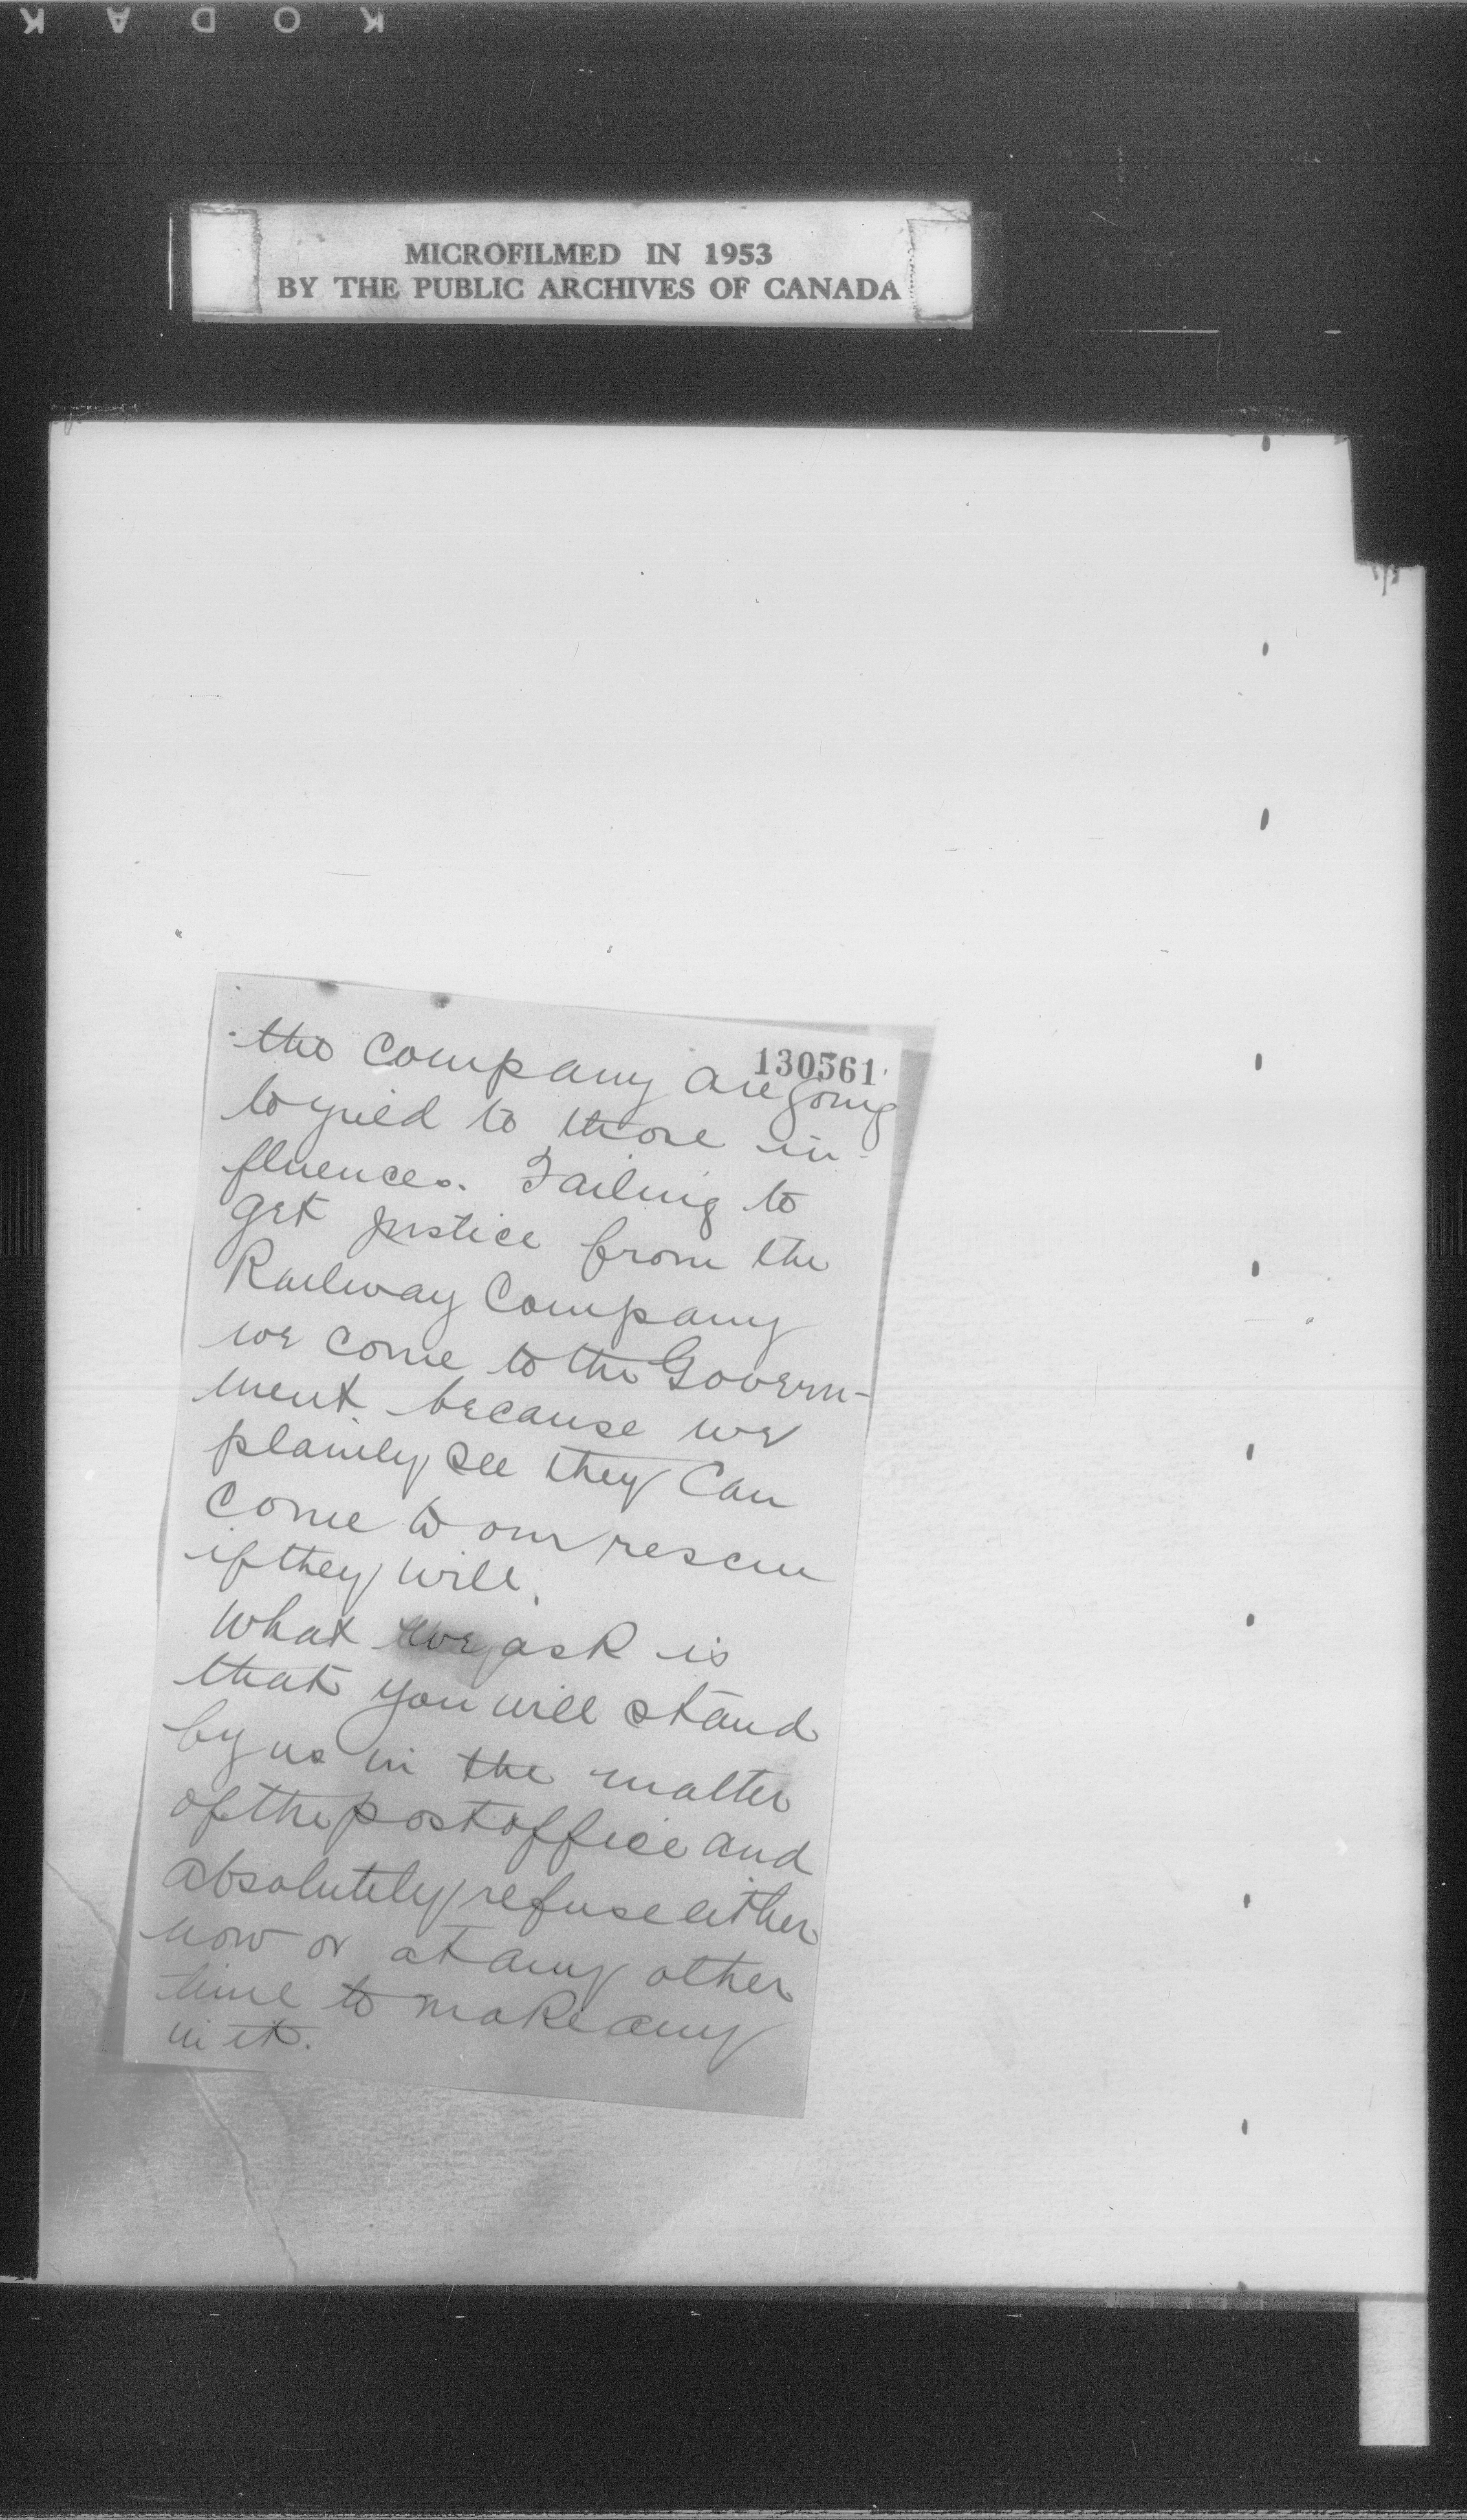 KODAK
MICROFILMED IN 1953
BY THE PUBLIC ARCHIVES OF CANADA
130561
the Company are going
to yield to those in-
fluences. Failing to
get justice from the
Railway Company
we come to the Govern-
ment because we
plainly see they can
come to our rescue
if they will.
What we ask is
that you will stand
by us in the matter
of the post office and
absolutely refuse either
now or at any other
time to make any
in it.